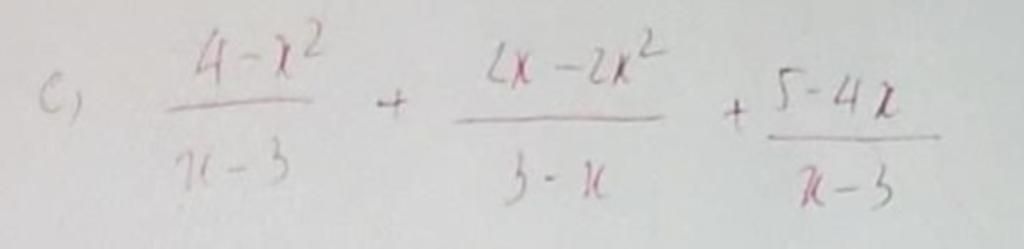 c) \frac{4-x^2}{x-3} + \frac{2x-2x^2}{3-x} + \frac{5-4x}{x-3}